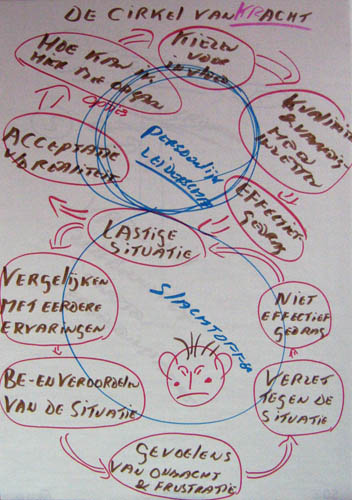 DE CIRKEL VAN KRACHT
HOE KAN IK
HIER MEE OMGAAN
OPTIES
KIEZEN
VOOR
INVLOED
KWALITEITEN
EFFECTIEF
GEDRAG
ACCEPTATIE
V/D REALITEIT
PERSOONLIJK
LEIDERSCHAP
LASTIGE
SITUATIE
VERGELIJKEN
MET EERDERE
ERVARINGEN
BE- EN VEROORDELEN
VAN DE SITUATIE
GEVOELENS
VAN ONMACHT
& FRUSTRATIE
VERZET
TEGEN DE
SITUATIE
NIET
EFFECTIEF
GEDRAG
SLACHTOFFER